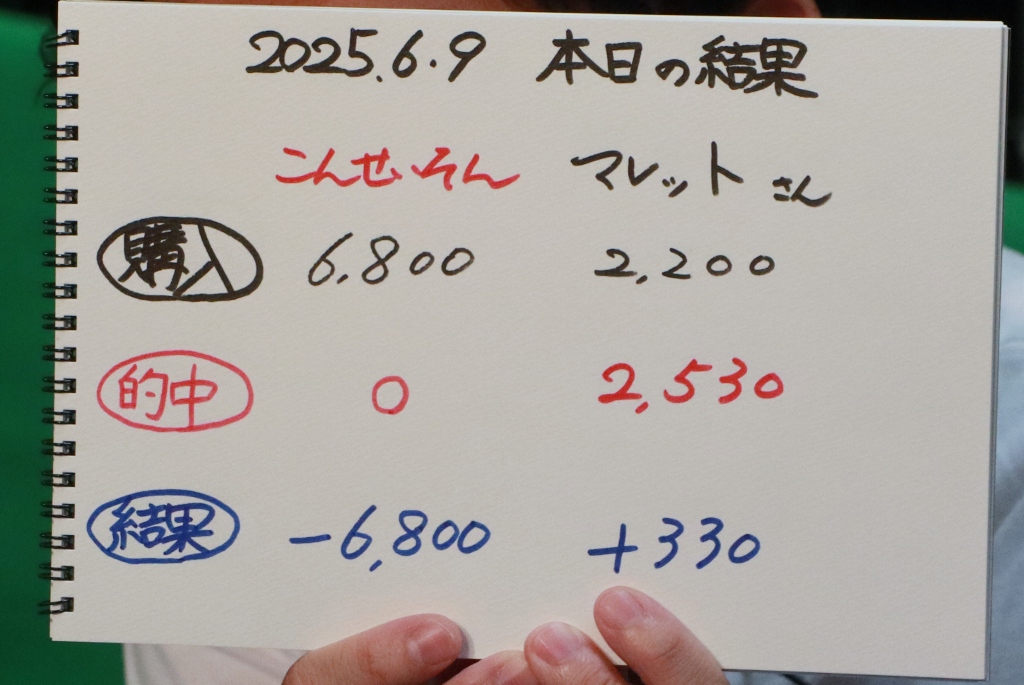 2025.6.9 本日の結果
こんせいそん マレットさん
購入 6,800 2,200
的中 0 2,530
結果 -6,800 +330